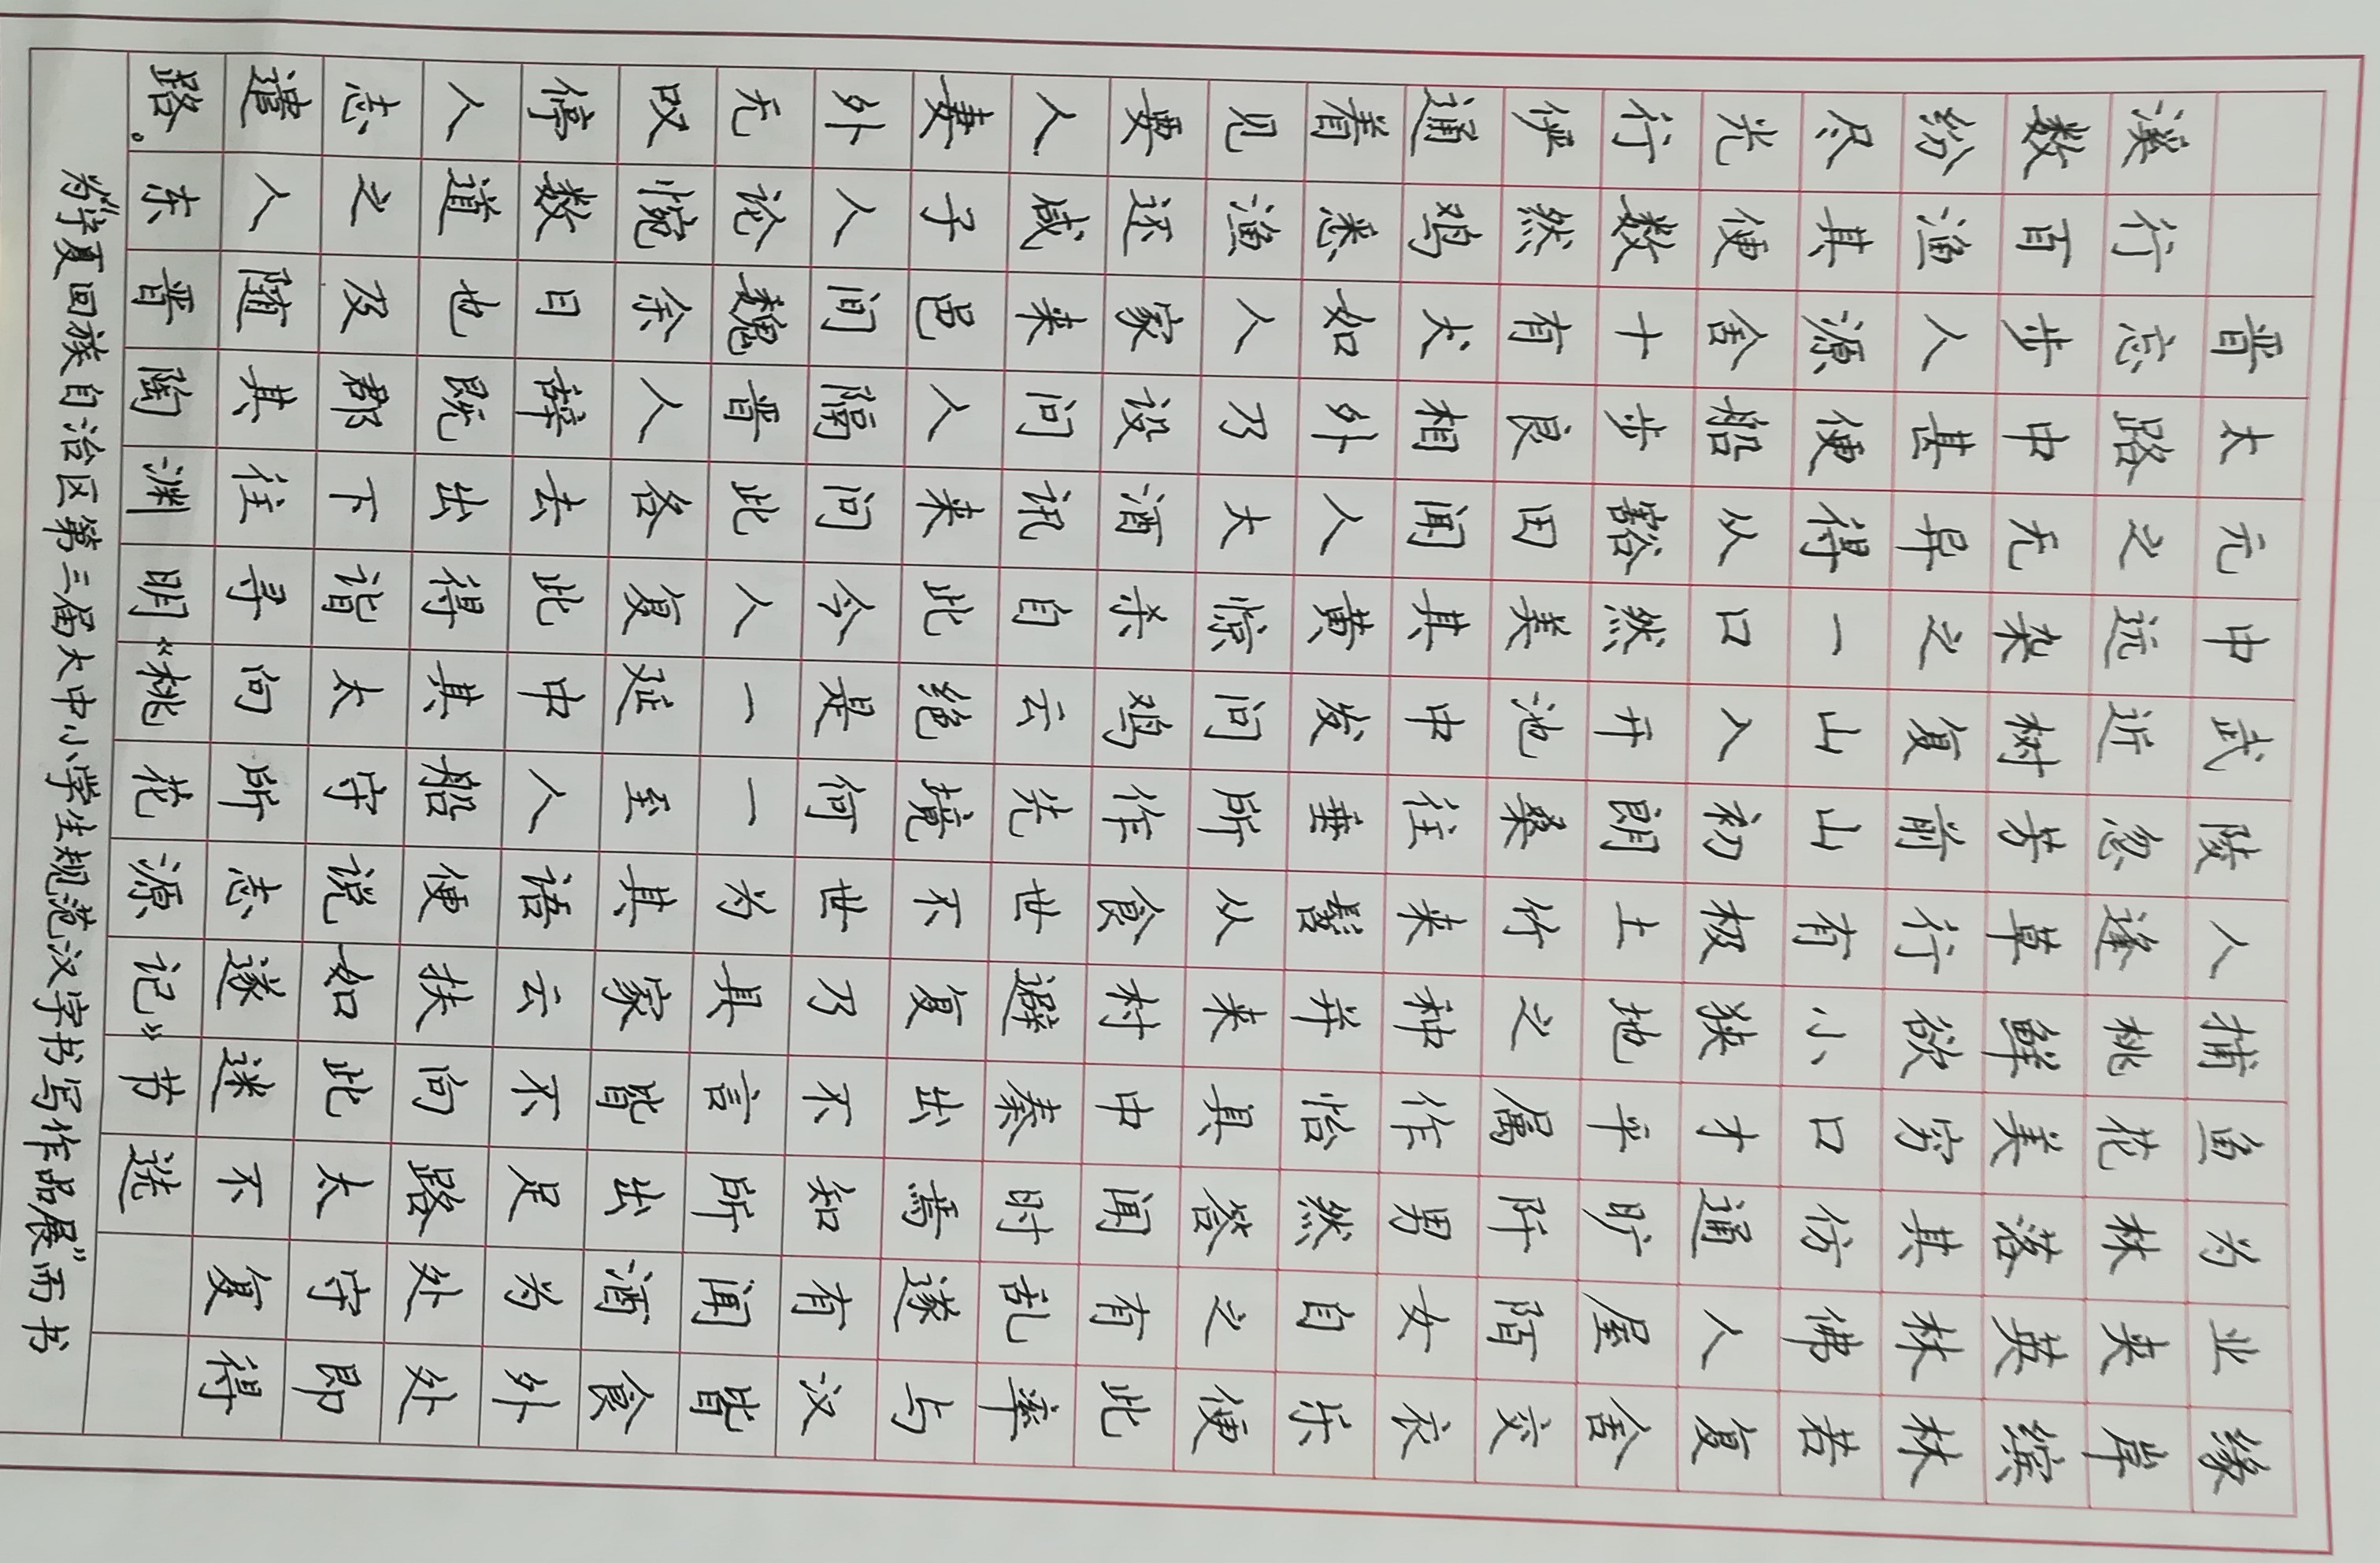 晋太元中武陵人捕鱼为业缘
溪行忘路之远近忽逢桃花林夹岸
数百步中无杂树芳草鲜美落英缤
纷渔人甚异之复前行欲穷其林林
尽其源便得一山山有小口仿佛若
光便舍船从口入初极狭才通人复
行数十步豁然开朗土地平旷屋舍
俨然有良田美池桑竹之属阡陌交
通鸡犬相闻其中往来种作男女衣
着悉如外人黄发垂髫并怡然自乐
见渔人乃大惊问所从来具答之便
要还家设酒杀鸡作食村中闻有此
人咸来问讯自云先世避秦时乱率
妻子邑人来此绝境不复出焉遂与
外人间隔问今是何世乃不知有汉
无论魏晋此人一一为具言所闻皆
叹惋余人各复延至其家皆出酒食
停数日辞去此中人语云不足为外
人道也既出得其船便扶向路处处
志之及郡下诣太守说如此太守即
遣人随其往寻向所志遂迷不复得
路。东晋陶渊明《桃花源记》节选
为“宁夏回族自治区第三届大中小学生规范汉字书写作品展”而书